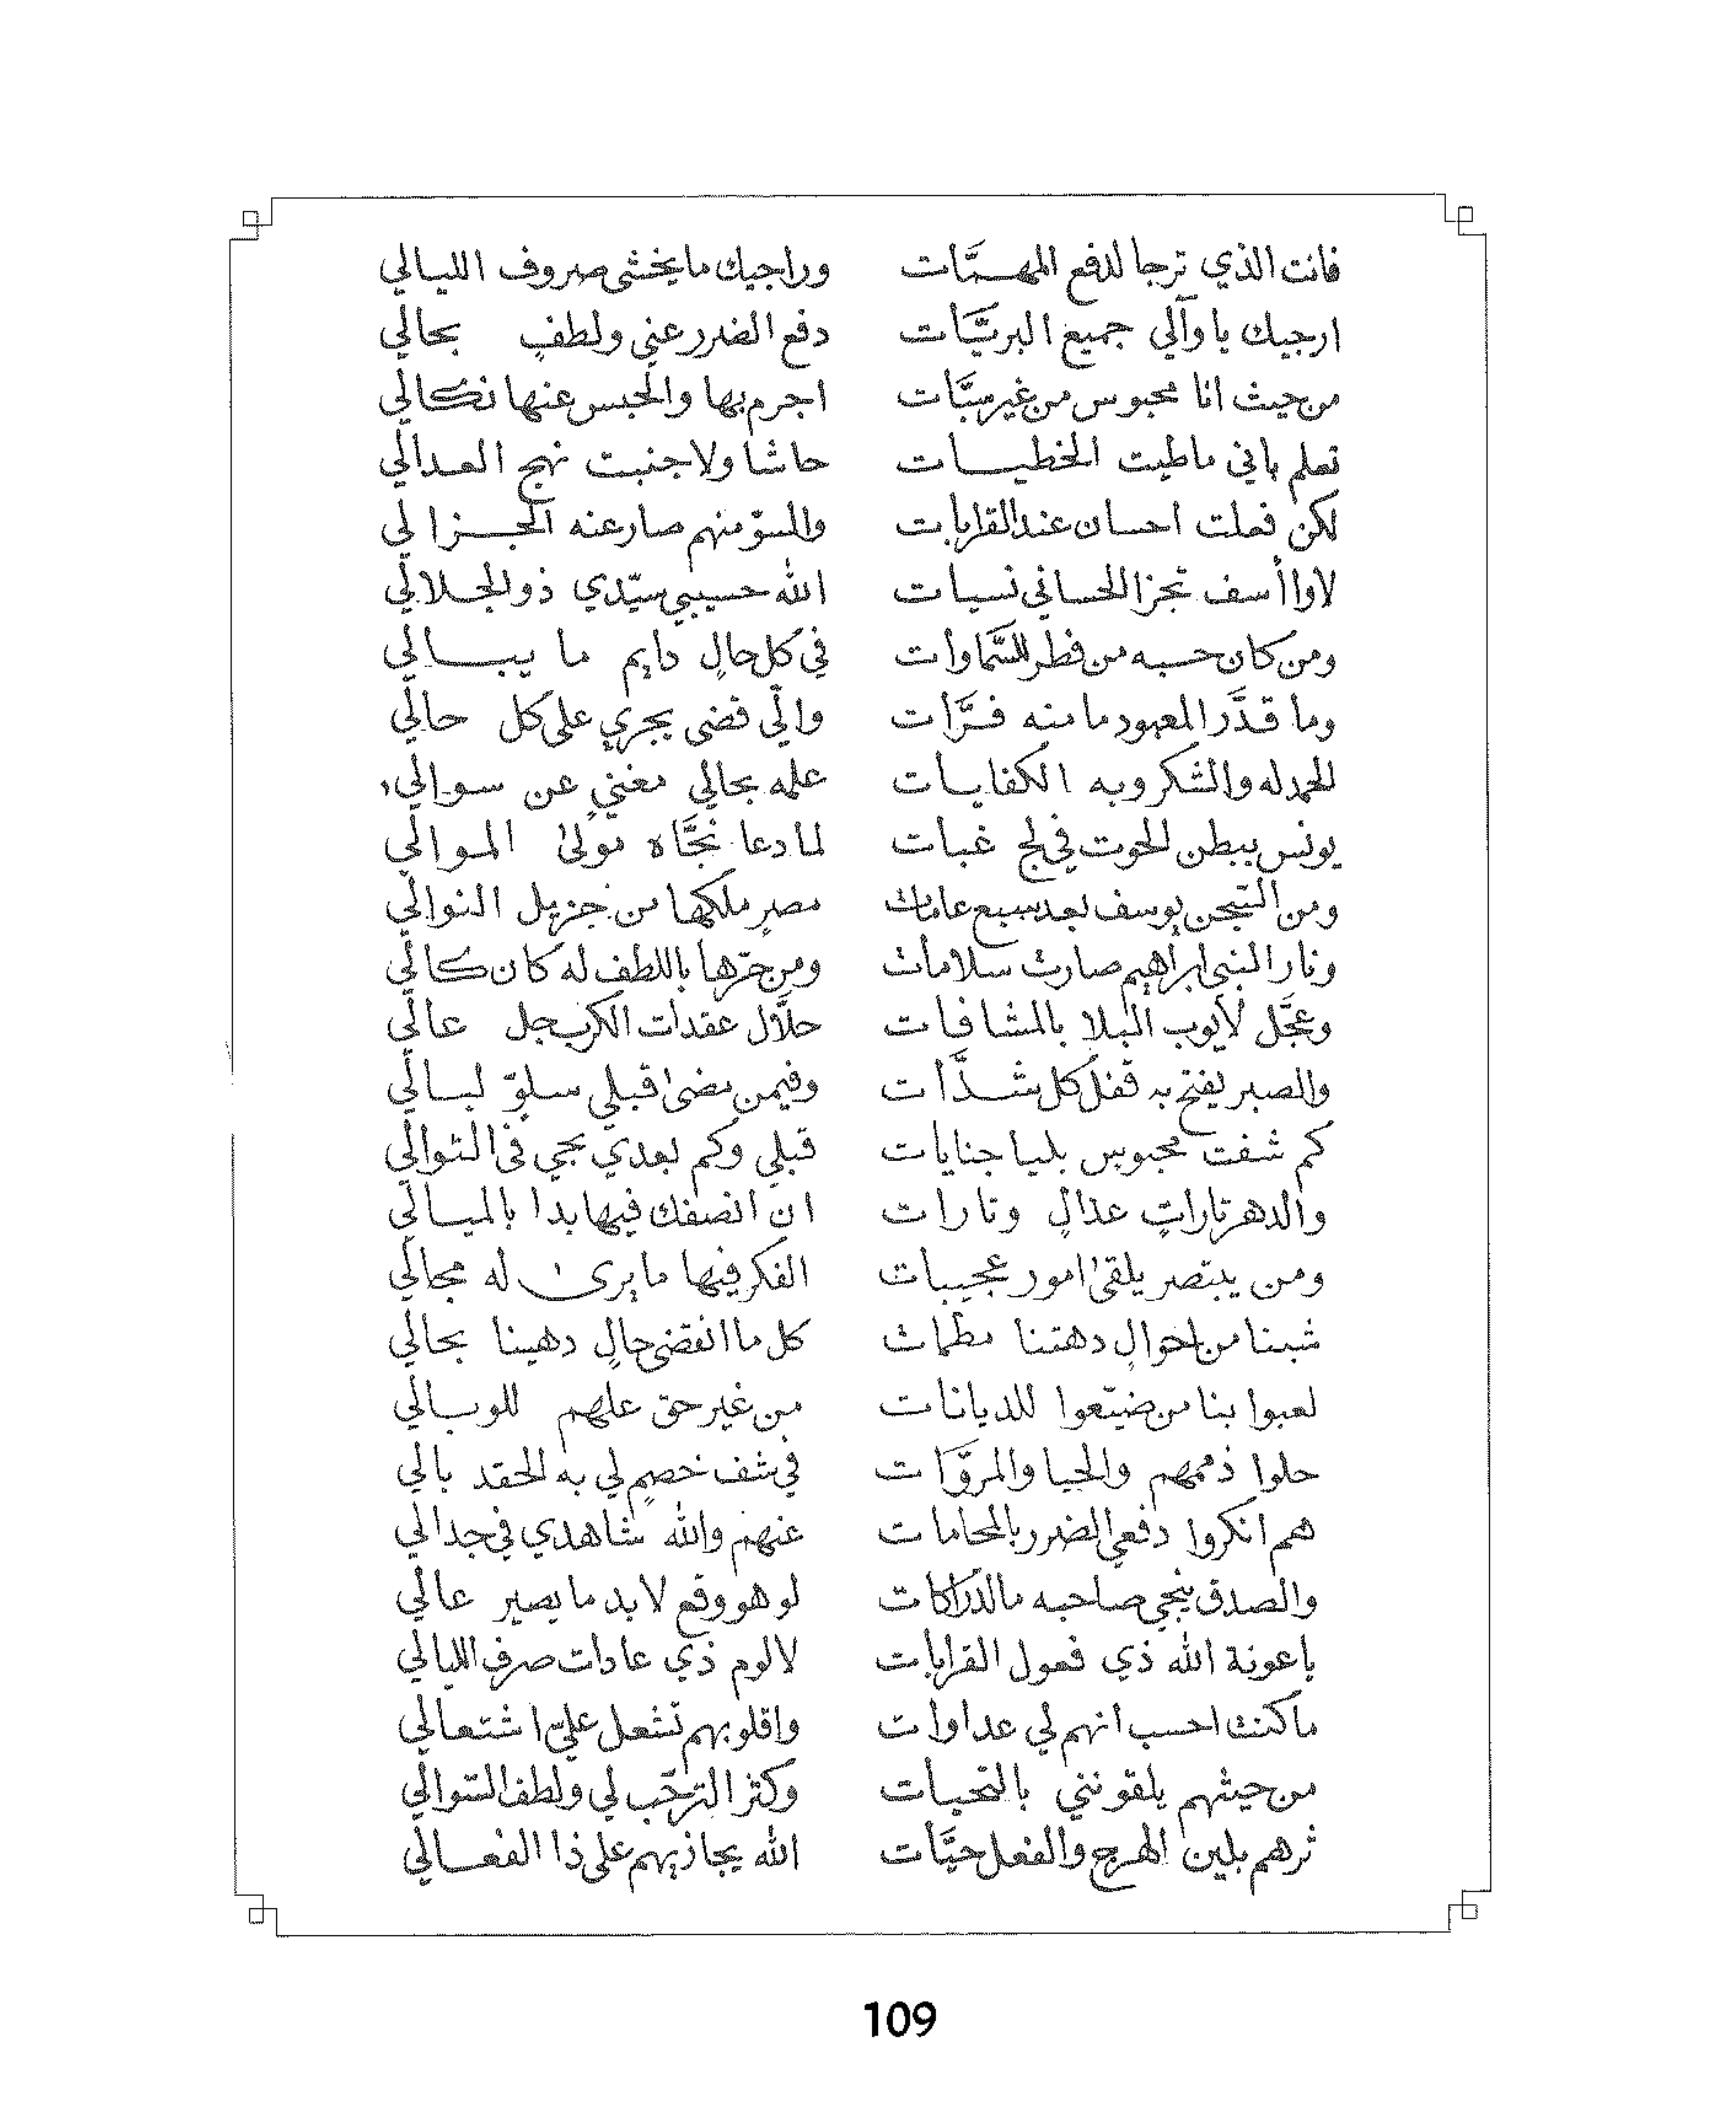 فانت الذي ترجا لدفع المهمَّات وراجيك ما يخشى صروف الليالي
ارجيك يا وآلي جميع البريَّات دفع الضرر عني ولطفٍ بحالي
من حيث انا محبوس من غير سبَّات اجرم بها والحبس عنها نكالي
تعلم باني ماطيت الخطيات حاشا ولا جنبت نهج العدالي
لكن فعلت احسان عند القرابات والسوّ منهم صار عنه الجزا لي
لاوا أسف تجزا الحساني نسيات الله حسيبي سيّدي ذو الجلالي
ومن كان حسبه من فطر للسَّماوات في كل حالٍ دايم ما يبالي
وما قدَّر المعبود ما منه فرَّات والّي قضى يجري على كل حالي
الحمد له والشكر وبه الكفايات علمه بحالي مغنيٍ عن سوالي
يونس ببطن الحوت في لج غبات لما دعا نجَّاه مولىٰ الموالي
ومن السّجن يوسف بعد سبع عامات مصرٍ ملكها من جزيل النوالي
ونار النبي ابراهيم صارت سلامات ومن حرّها باللطف له كان كالي
وعجَّل لأيوب البلا بالمشافات حلَّال عقدات الكرب جل عالي
والصبر يفتح به قفل كل شدَّات وفيمن مضىٰ قبلي سلوّ لبالي
كم شفت محبوسٍ بليا جنايات قبلي وكم بعدي يجي في التوالي
والدهر تاراتٍ عدالٍ وتارات ان انصفك فيها بدا بالميالي
ومن يبتصر يلقىٰ امور عجيبات الفكر فيها ما يرىٰ له مجالي
شبنا من احوالٍ دهتنا مظمات كل ما انقضى حالٍ دهينا بحالي
لعبوا بنا من ضيّعوا للديانات من غير حق علهم للوبالي
حلوا ذممهم والحيا والمروَّات في شف خصمٍ لي به الحقد بالي
هم انكروا دفعي الضرر بالمحامات عنهم والله شاهدي في جدالي
والصدق ينجي صاحبه مالدّراكات لو هو وقع لا بد ما يصير عالي
يا عونة الله ذي فعول القرابات لا لوم ذي عادات صرف الليالي
ما كنت احسب انهم لي عداوات واقلوبهم تشعل عليّ اشتعالي
من حيثهم يلقونني بالتحيات وكثر الترحّب لي ولطف التوالي
ثرهم بلين الهرج والفعل حيَّات الله يجازيهم على ذا الفعالي
109